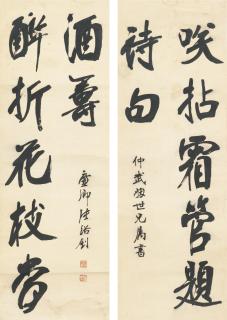 咲拈霜管題
詩句
仲武世兄屬書
醉折花枝當
酒尊
卿